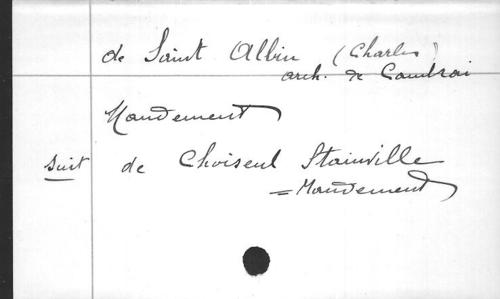 de Saint Albin (Charles)
arch. de Cambrai
Mandement
suit de Choiseul Stainville
= Mandement